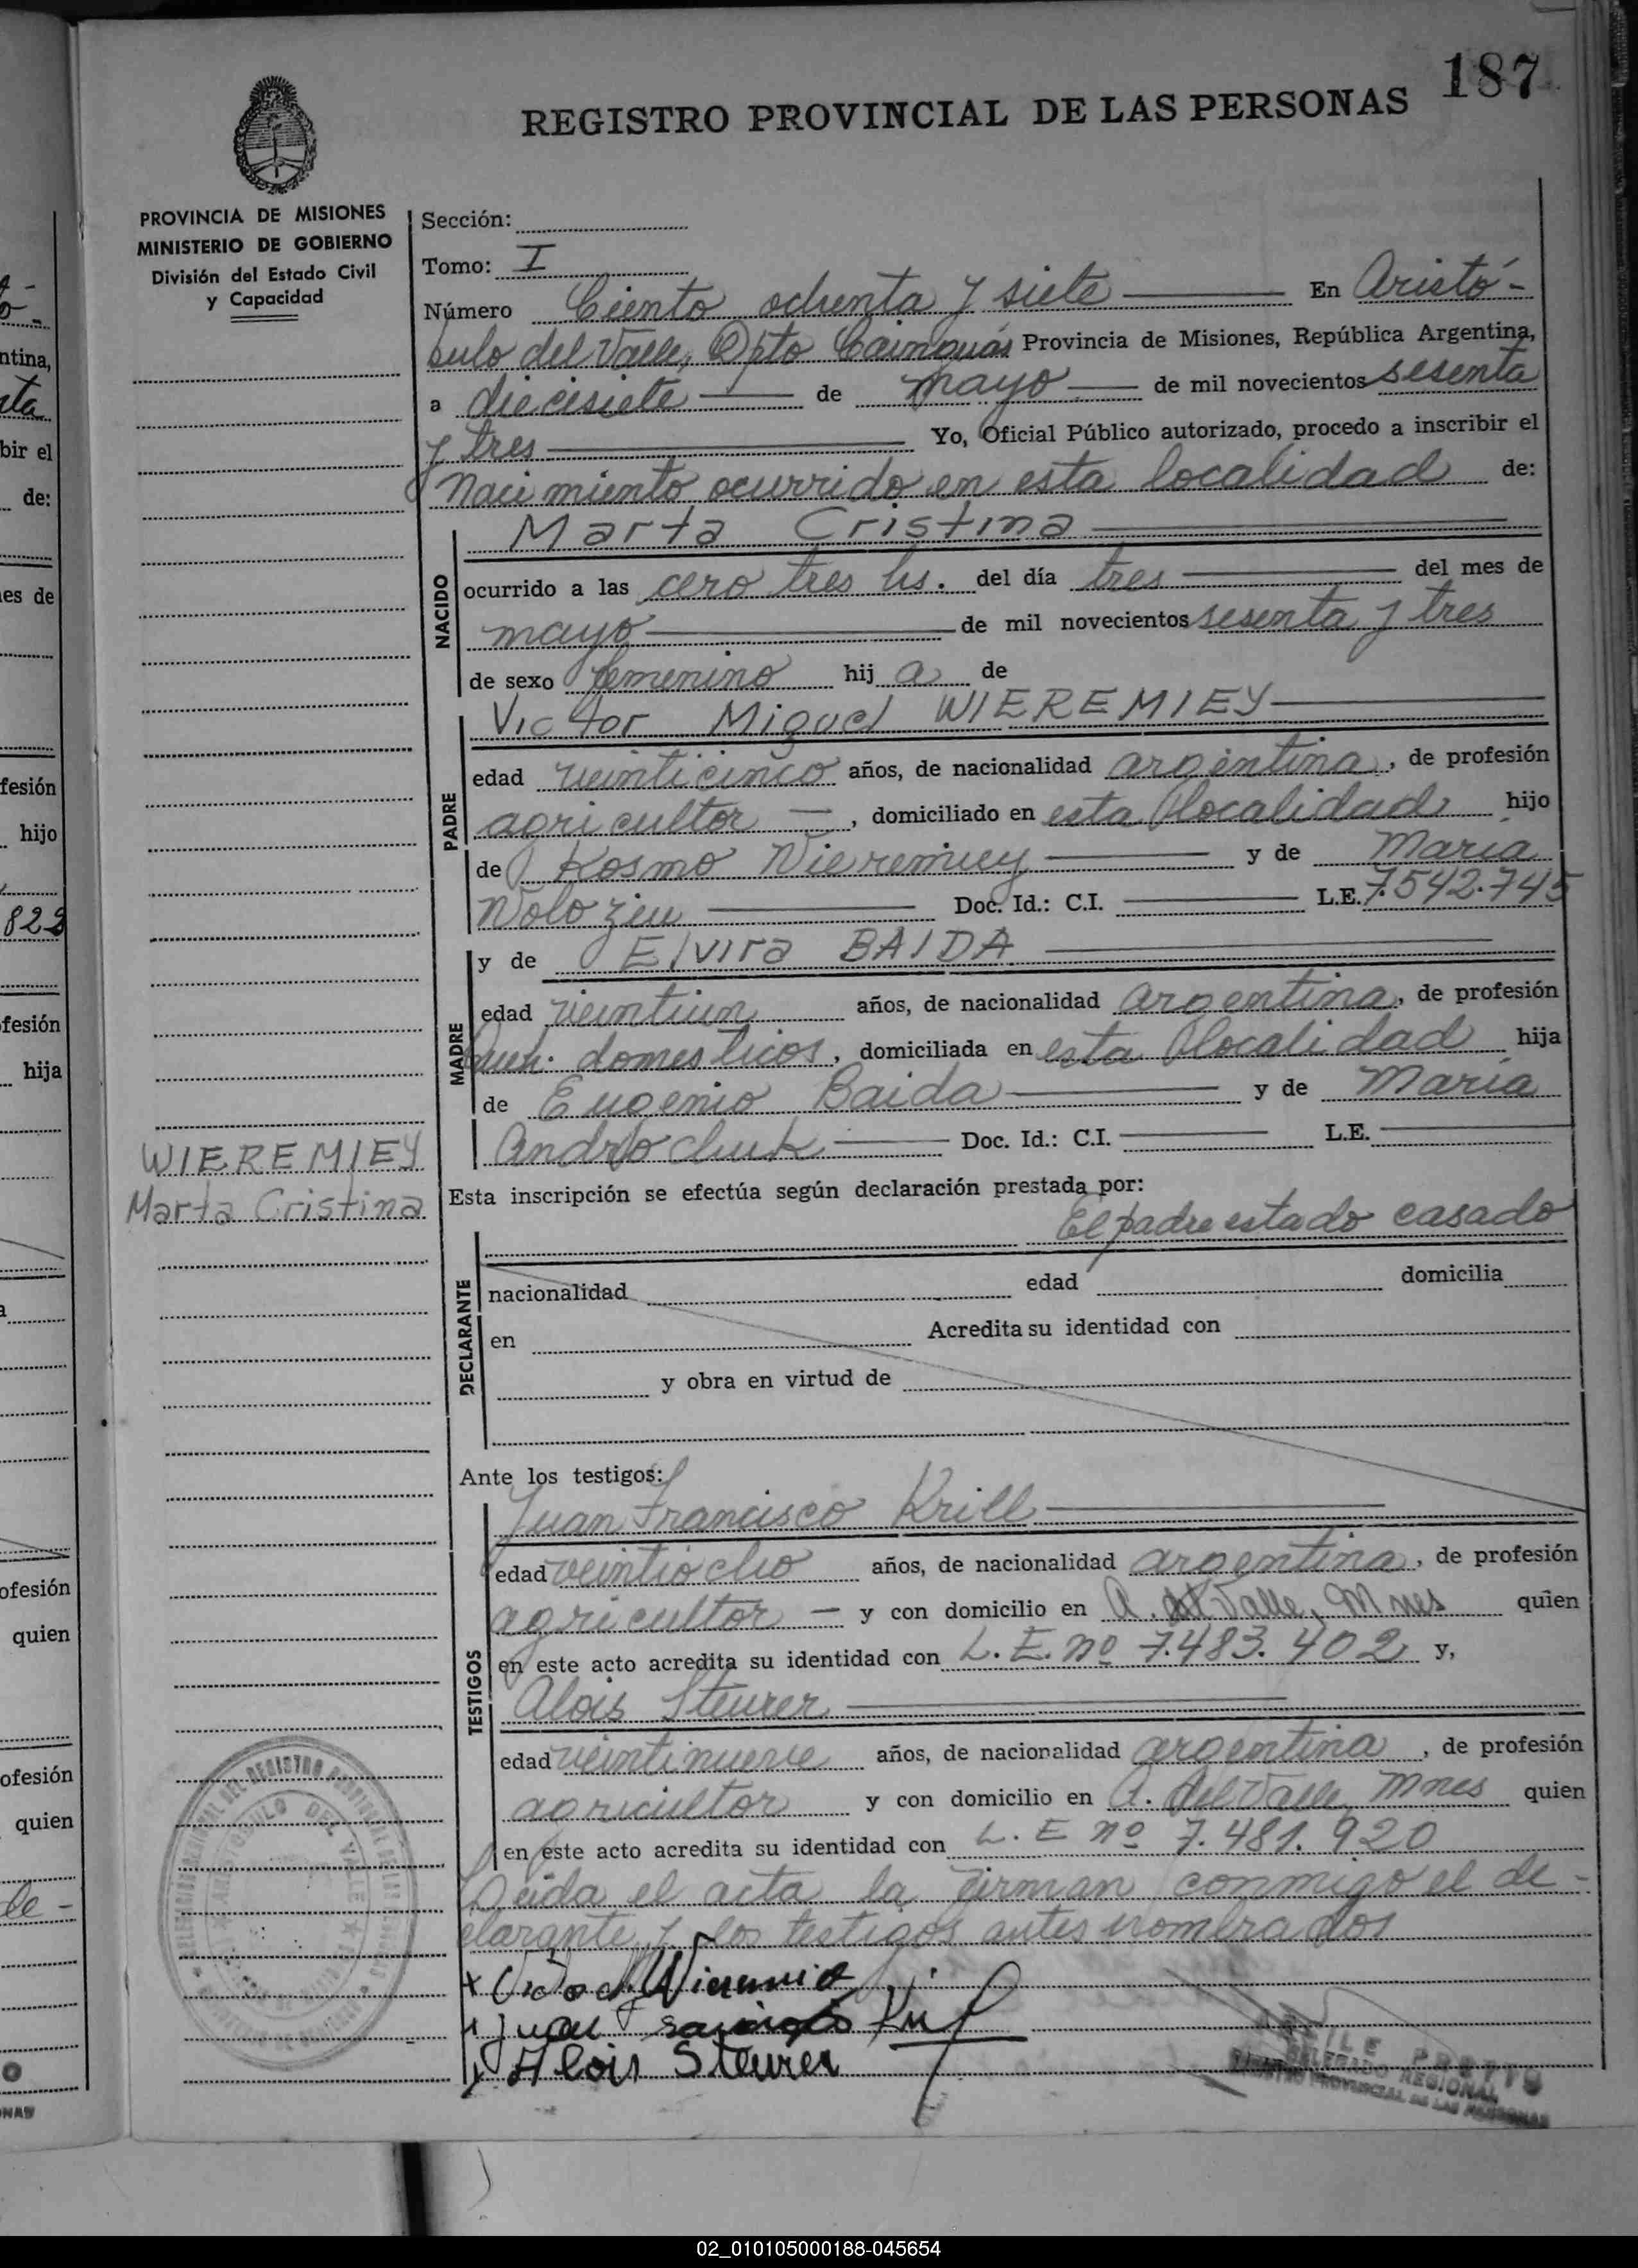 187
REGISTRO PROVINCIAL DE LAS PERSONAS
PROVINCIA DE MISIONES
MINISTERIO DE GOBIERNO
División del Estado Civil
y Capacidad
Sección:
Tomo: I
Número Ciento ochenta y siete En Aristó-
bulo del Valle, Dpto Cainguás Provincia de Misiones, República Argentina,
a diecisiete de mayo de mil novecientos sesenta
y tres Yo, Oficial Público autorizado, procedo a inscribir el
Nacimiento ocurrido en esta localidad de:
NACIDO
Marta Cristina
ocurrido a las cero tres hs. del día tres del mes de
mayo de mil novecientos sesenta y tres
de sexo femenino hij a de
PADRE
Victor Miguel WIEREMIEY
edad veinticinco años, de nacionalidad argentina, de profesión
agricultor, domiciliado en esta localidad hijo
de Kosmo Wieremiey y de Maria
Wolo Doc. Id.: C.I. L.E. 7.542.745
MADRE
y de Elvira BAIDA
edad vieintiun años, de nacionalidad argentina, de profesión
Queh. domesticos, domiciliada en esta localidad hija
de Eugenio Baida y de María
Androchuk Doc. Id.: C.I. L.E.
WIEREMIEY
Marta Cristina
Esta inscripción se efectúa según declaración prestada por:
El padre estado casado
DECLARANTE
nacionalidad edad domicilia
en Acredita su identidad con
y obra en virtud de
Ante los testigos:
TESTIGOS
Juan Francisco Krill
edad veintiocho años, de nacionalidad argentina, de profesión
agricultor y con domicilio en A. del Valle, Mnes quien
en este acto acredita su identidad con L. E. nº 7.483.402 y,
Alois Steurer
edad veintinueve años, de nacionalidad argentina, de profesión
agricultor y con domicilio en A. del Valle, Mnes quien
en este acto acredita su identidad con L. E nº 7.481.920
Leida el acta la firman conmigo el de-
clarante y los testigos antes nombrados
Alois Steurer
DELEGADO REGIONAL
REGISTRO PROVINCIAL DE LAS PERSONAS
02_010105000188-045654